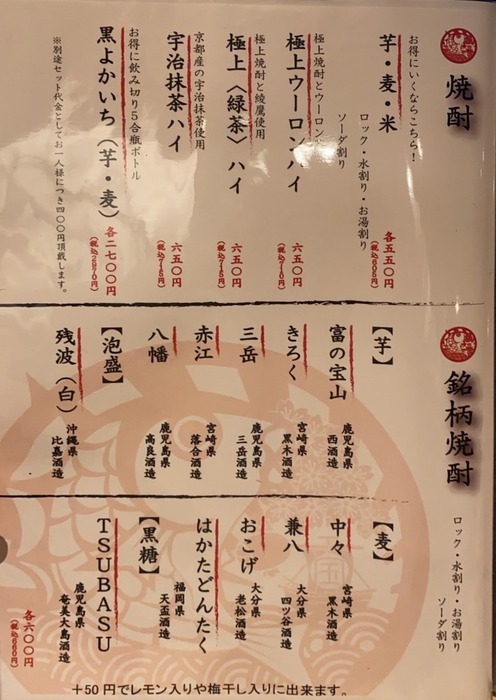 焼酎
お得にいくならこちら！
芋・麦・米
ロック・水割り・お湯割り
ソーダ割り
各五五〇円
(税込605円)
極上焼酎とウーロン
極上ウーロンハイ
六五〇円
(税込715円)
極上焼酎と綾鷹使用
極上〈緑茶〉ハイ
六五〇円
(税込715円)
京都産の宇治抹茶使用
宇治抹茶ハイ
六五〇円
(税込715円)
お得に飲み切り5合瓶ボトル
黒よかいち（芋・麦）
各二七〇〇円
(税込2970円)
※別途セット代金としてお一人様につき四〇〇円頂戴します。
銘柄焼酎
ロック・水割り・お湯割り
ソーダ割り
【芋】
富の宝山
鹿児島県
西酒造
きろく
宮崎県
黒木酒造
三岳
鹿児島県
三岳酒造
赤江
宮崎県
落合酒造
八幡
鹿児島県
高良酒造
【泡盛】
残波（白）
沖縄県
比嘉酒造
【麦】
中々
宮崎県
黒木酒造
兼八
大分県
四ツ谷酒造
おこげ
大分県
老松酒造
はかたどんたく
福岡県
天盃酒造
【黒糖】
TSUBASU
鹿児島県
奄美大島酒造
各六〇〇円
(税込660円)
＋50円でレモン入りや梅干し入りに出来ます。